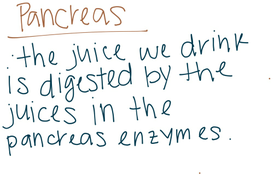 Pancreas
. the juice we drink
is digested by the
juices in the
pancreas enzymes.